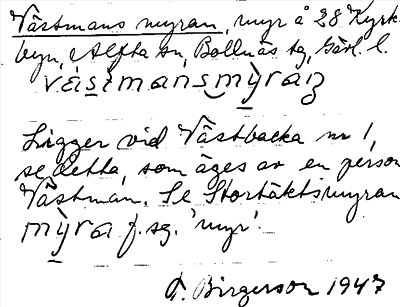 Västmans myran, myr å 28 Kyrk-
byn, Alfta sn, Bollnäs tg, Gävl. l.
Ligger vid Västbacka nr 1,
se detta, som äges av en person
Västman. Se Stortäktsmyran
mỳra f. sg. 'myr'.
F. Birgerson 1947